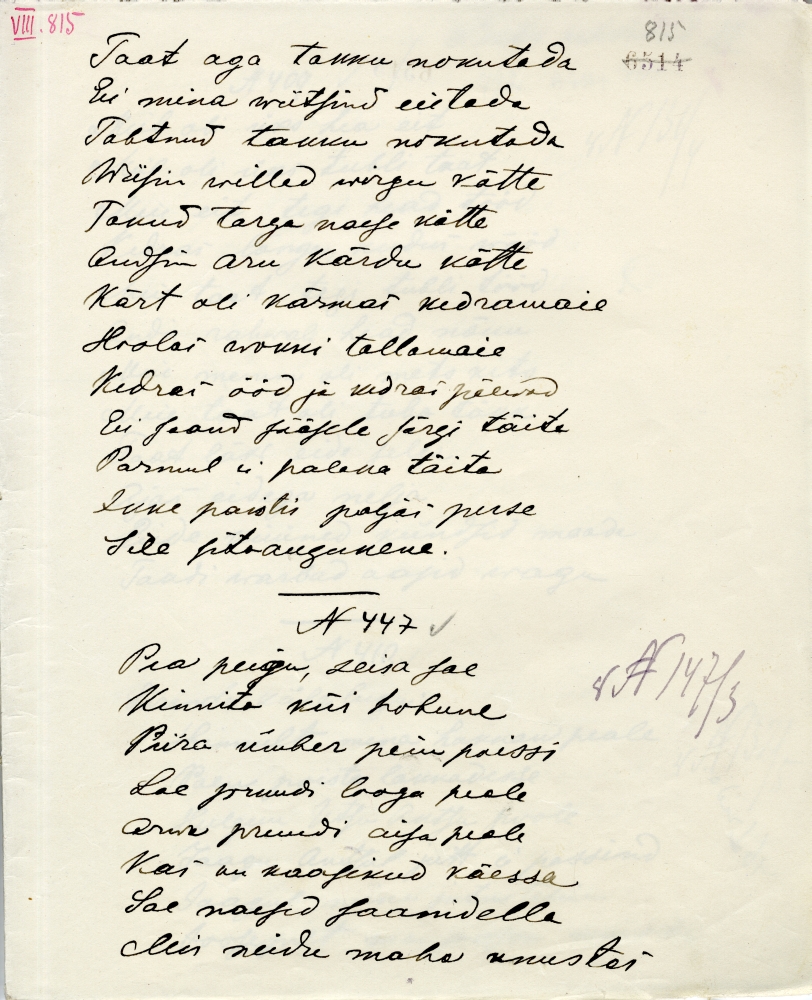 VIII. 815
815
6514
Taat aga takku nokutada
Ei mina wiitsind eietada
Tahtnud takku nokutada
Wiisin willad wirgu kätte
Takud targa naese kätte
Andsin aru Kärdu kätte
Kärt oli kärmas kedramaie
Hoolas wokki tallamaie
Kedras ööd ja kedras päewad
Ei saand sääsele särgi täita
Parmul ei palaka täita
Ikke paistis paljas perse
Sile sitaaugukene.
N 447
Pea peigu, seisa sae
Kinnita küis hobune
Piira ümber pein poissi
Loe pruudi looga peale
Arwa pruudi aisa peale
Kas on kaasikud käessa
Sae naesed saanidella
Mis neidu maha unustas
N 147/3